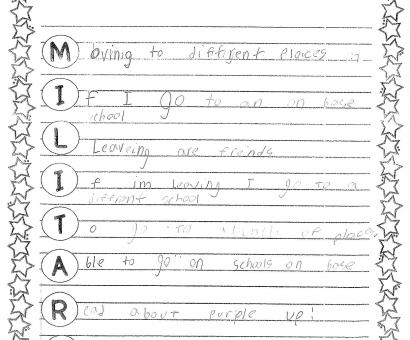 Moving to different places
If I go to an on base
school
Leaveing are freinds
If im leaving I go to a
diffrent school
To go to of places
Able to go on schools on base
Read about purple up!